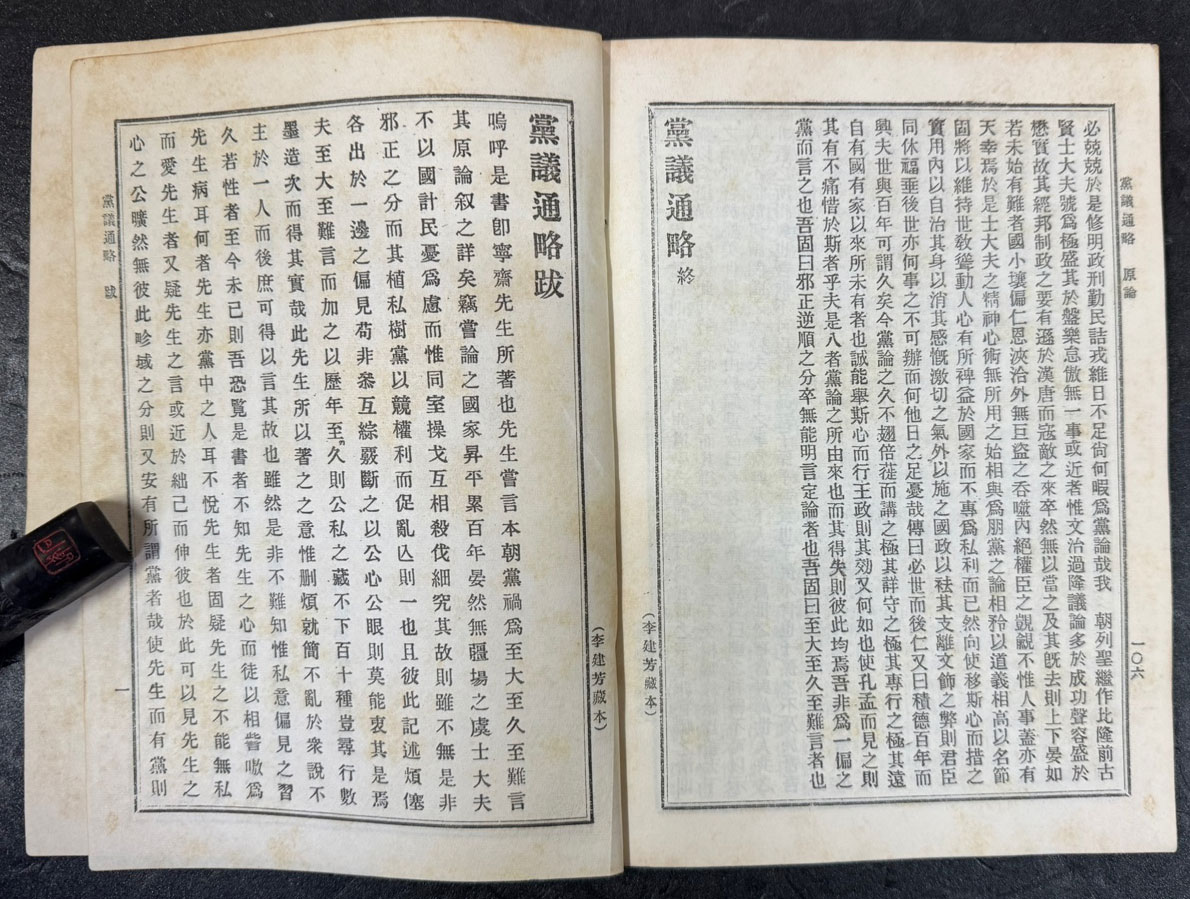 黨議通略 原論
一〇六
必兢兢於是修明政刑勤民詰戎維日不足尙何暇爲黨論哉我 朝列聖繼作比隆前古
賢士大夫號爲極盛其於盤樂怠傲無一事或近者惟文治過隆議論多於成功聲容盛於
懋實故其經邦制政之要有遜於漢唐而寇敵之來卒然無以當之及其旣去則上下晏如
若未始有難者國小壤偏仁恩浹洽外無巨盜之呑噬內絕權臣之覬覦不惟人事蓋亦有
天幸焉於是士大夫之精神心術無所用之始相與爲朋黨之論相矜以道義相高以名節
固將以維持世敎聳動人心有所裨益於國家而不專爲私利而已然向使移斯心而措之
實用內以自治其身以消其感慨激切之氣外以施之國政以袪其支離文飾之弊則君臣
同休福垂後世亦何事之不可辦而何他日之足憂哉傳曰必世而後仁又曰積德百年而
興夫世與百年可謂久矣今黨論之久不翅倍蓰而講之極其詳守之極其專行之極其遠
自有國有家以來所未有者也誠能舉斯心而行王政則其効又何如也使孔孟而見之則
其有不痛惜於斯者乎夫是八者黨論之所由來也而其得失則彼此均焉吾非爲一偏之
黨而言之也吾固曰邪正逆順之分卒無能明言定論者也吾固曰至大至久至難言者也
黨議通略 終
(李建芳藏本)
黨議通略跋
嗚呼是書卽寧齋先生所著也先生嘗言本朝黨禍爲至大至久至難言
其原論叙之詳矣竊嘗論之國家昇平累百年晏然無疆場之虞士大夫
不以國計民憂爲慮而惟同室操戈互相殺伐細究其故則雖不無是非
邪正之分而其植私樹黨以競權利而促亂亾則一也且彼此記述煩僿
各出於一邊之偏見苟非叅互綜覈斷之以公心公眼則莫能衷其是焉
夫至大至難言而加之以歷年至久則公私之藏不下百十種豈尋行數
墨造次而得其實哉此先生所以著之之意惟刪煩就簡不亂於衆說不
主於一人而後庶可得以言其故也雖然是非不難知惟私意偏見之習
久若性者至今未已則吾恐覽是書者不知先生之心而徒以相訾嗷爲
先生病耳何者先生亦黨中之人耳不悅先生者固疑先生之不能無私
而愛先生者又疑先生之言或近於絀己而伸彼也於此可以見先生之
心之公曠然無彼此畛域之分則又安有所謂黨者哉使先生而有黨則
(李建芳藏本)
黨議通略 跋
一